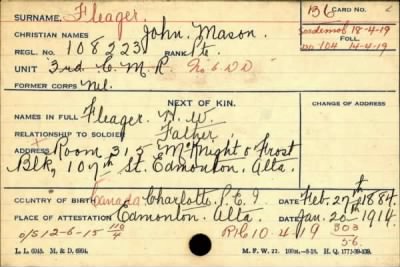 SURNAME. Fleager. 136 CARD NO.
CHRISTIAN NAMES John Mason. Sosdemob 18-4-19
REGL. NO. 108223 RANK Pte. FOLL.
DO 104 14-4-19
UNIT 3rd C. M. R. No 6 DD
FORMER CORPS Nil.
NEXT OF KIN. CHANGE OF ADDRESS
NAMES IN FULL Fleager. N. W.
RELATIONSHIP TO SOLDIER Father
ADDRESS Room 315 McKnight & Frost
Blk, 107th St. Edmonton, Alta.
COUNTRY OF BIRTH Canada Charlotte, P. E. I DATE Feb. 27th 1884.
PLACE OF ATTESTATION Edmonton. Alta. DATE Jan. 20th 1914.
O/S 12-6-15 110/4 R/C 10.4.19 303
56.
L. L. 6045. M. & D. 6994. M. F. W. 22 100M.-8-18. H. Q. 1772-39-839.